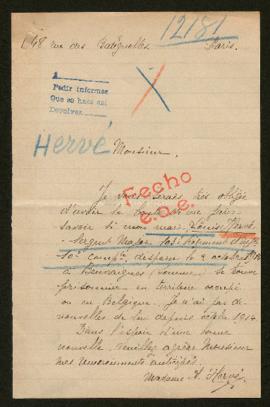 48 rue des Batignolles Paris.
12181
Pedir informes
Que se hace así
Devolver
Hervé
Monsieur,
Je vous serais très obligée
d'avoir la bonté de me faire
savoir si mon mari, Louis Hervé
Sergent Major
10e Compie, disparu le 2 octobre 1914
à Beuvraignes (Somme) se trouve
prisonnier en territoire occupé
ou en Belgique. Je n'ai pas de
nouvelles de lui depuis octobre 1914
Dans l'espoir d'une bonne
nouvelle, veuillez agréer Monsieur
mes remerciements anticipés.
Madame A. Hervé
Fecho